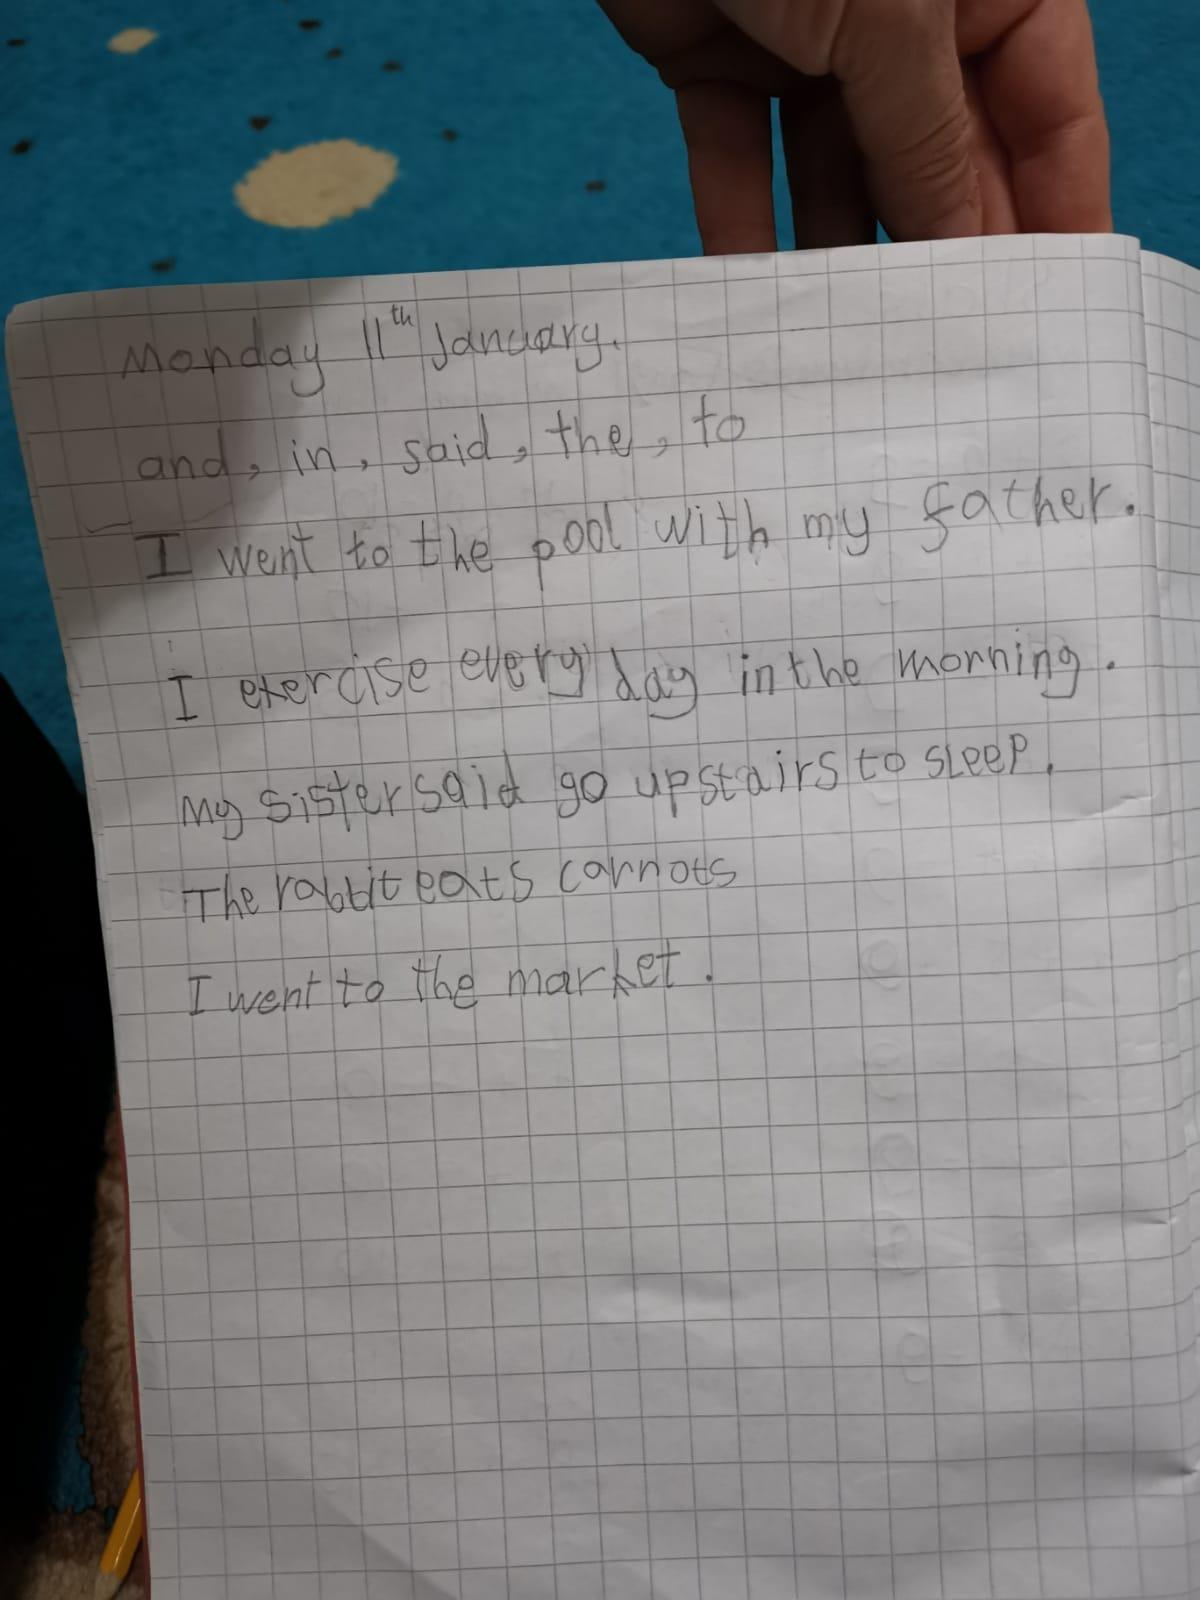 Monday 11th January.
and, in, said, the, to
I went to the pool with my father.
I exercise every day in the morning.
My sister said go upstairs to sleep.
The rabbit eats carrots
I went to the market.